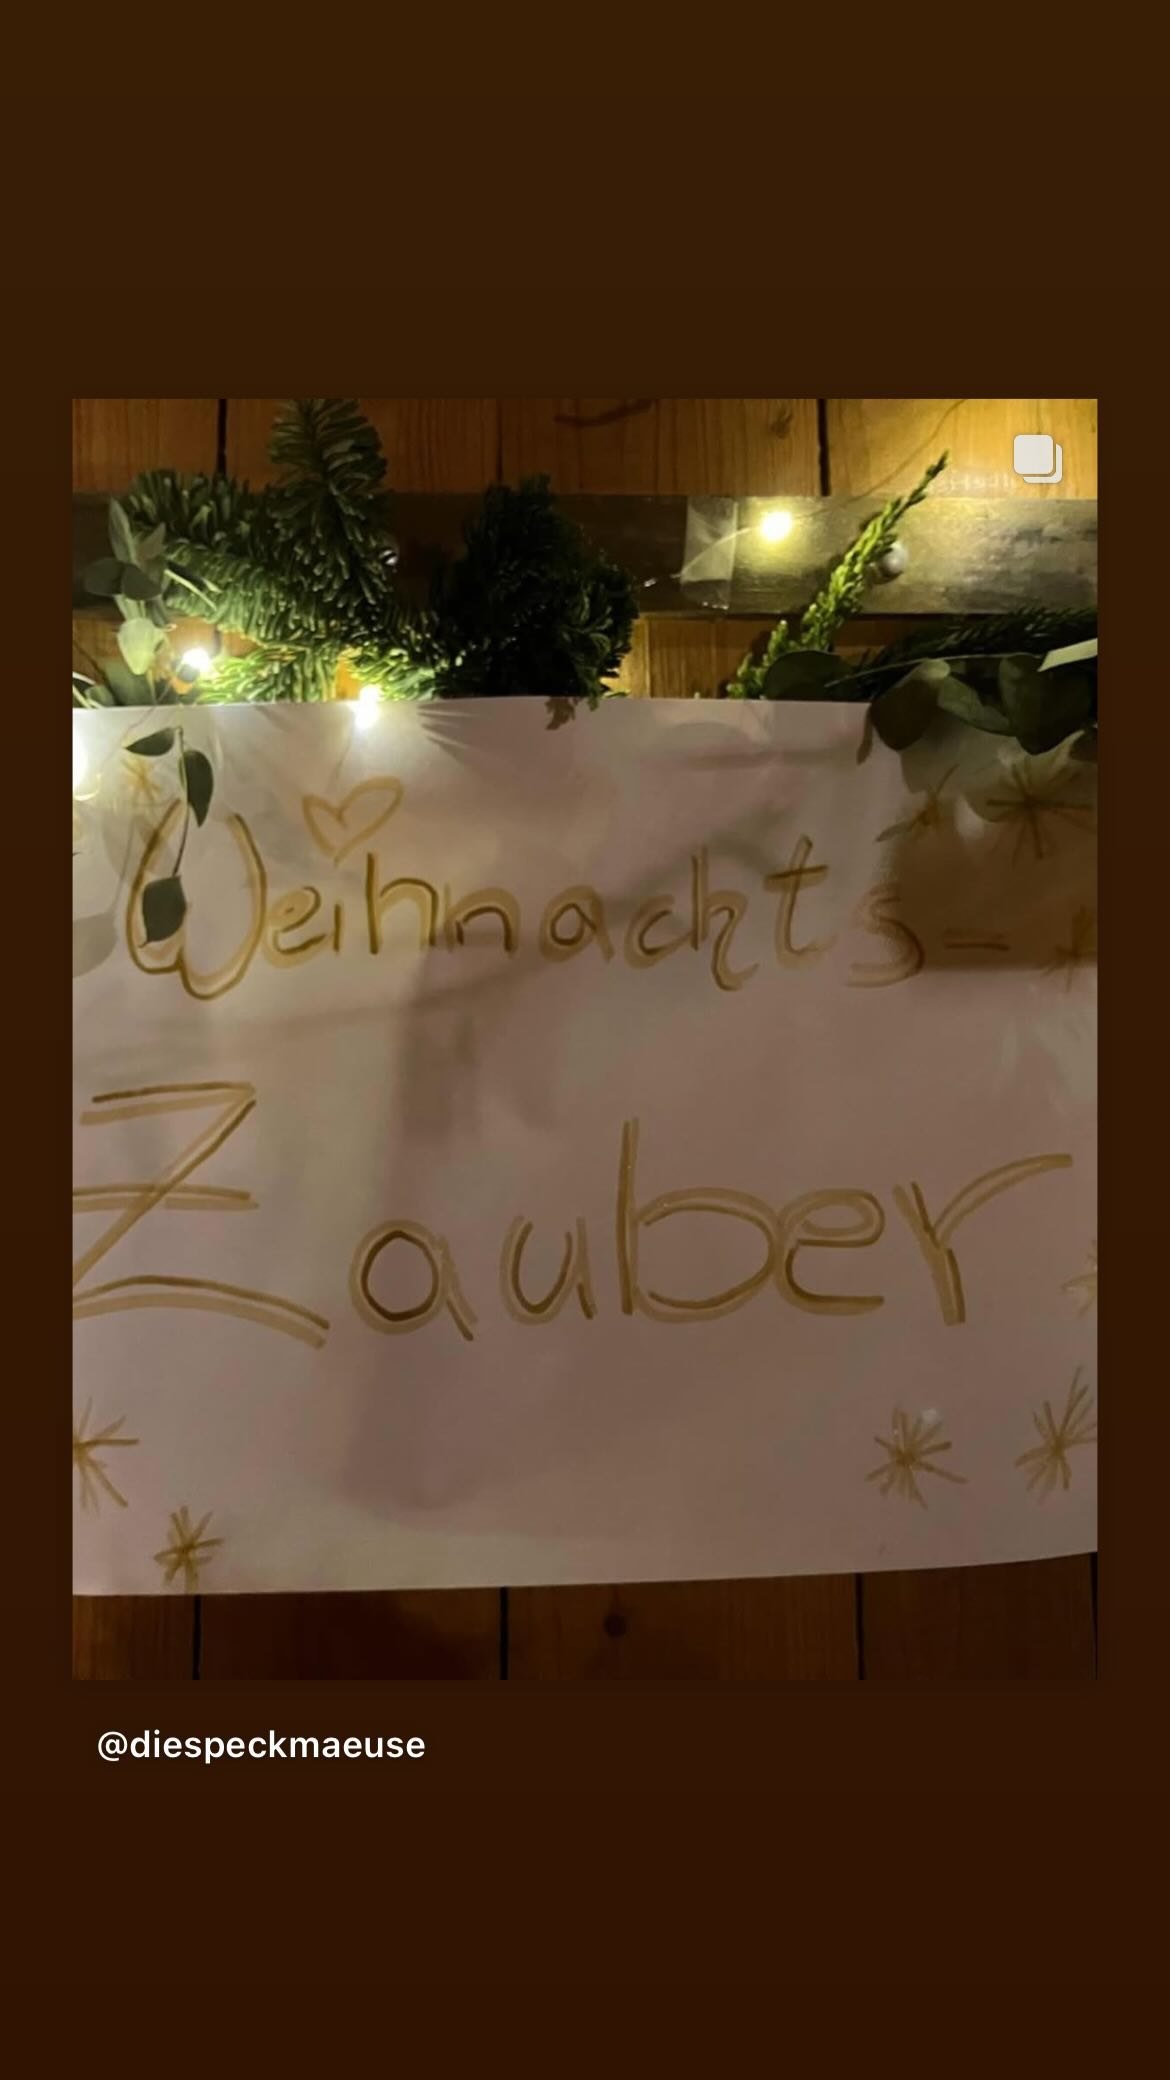 Weihnachts-
Zauber
@diespeckmaeuse